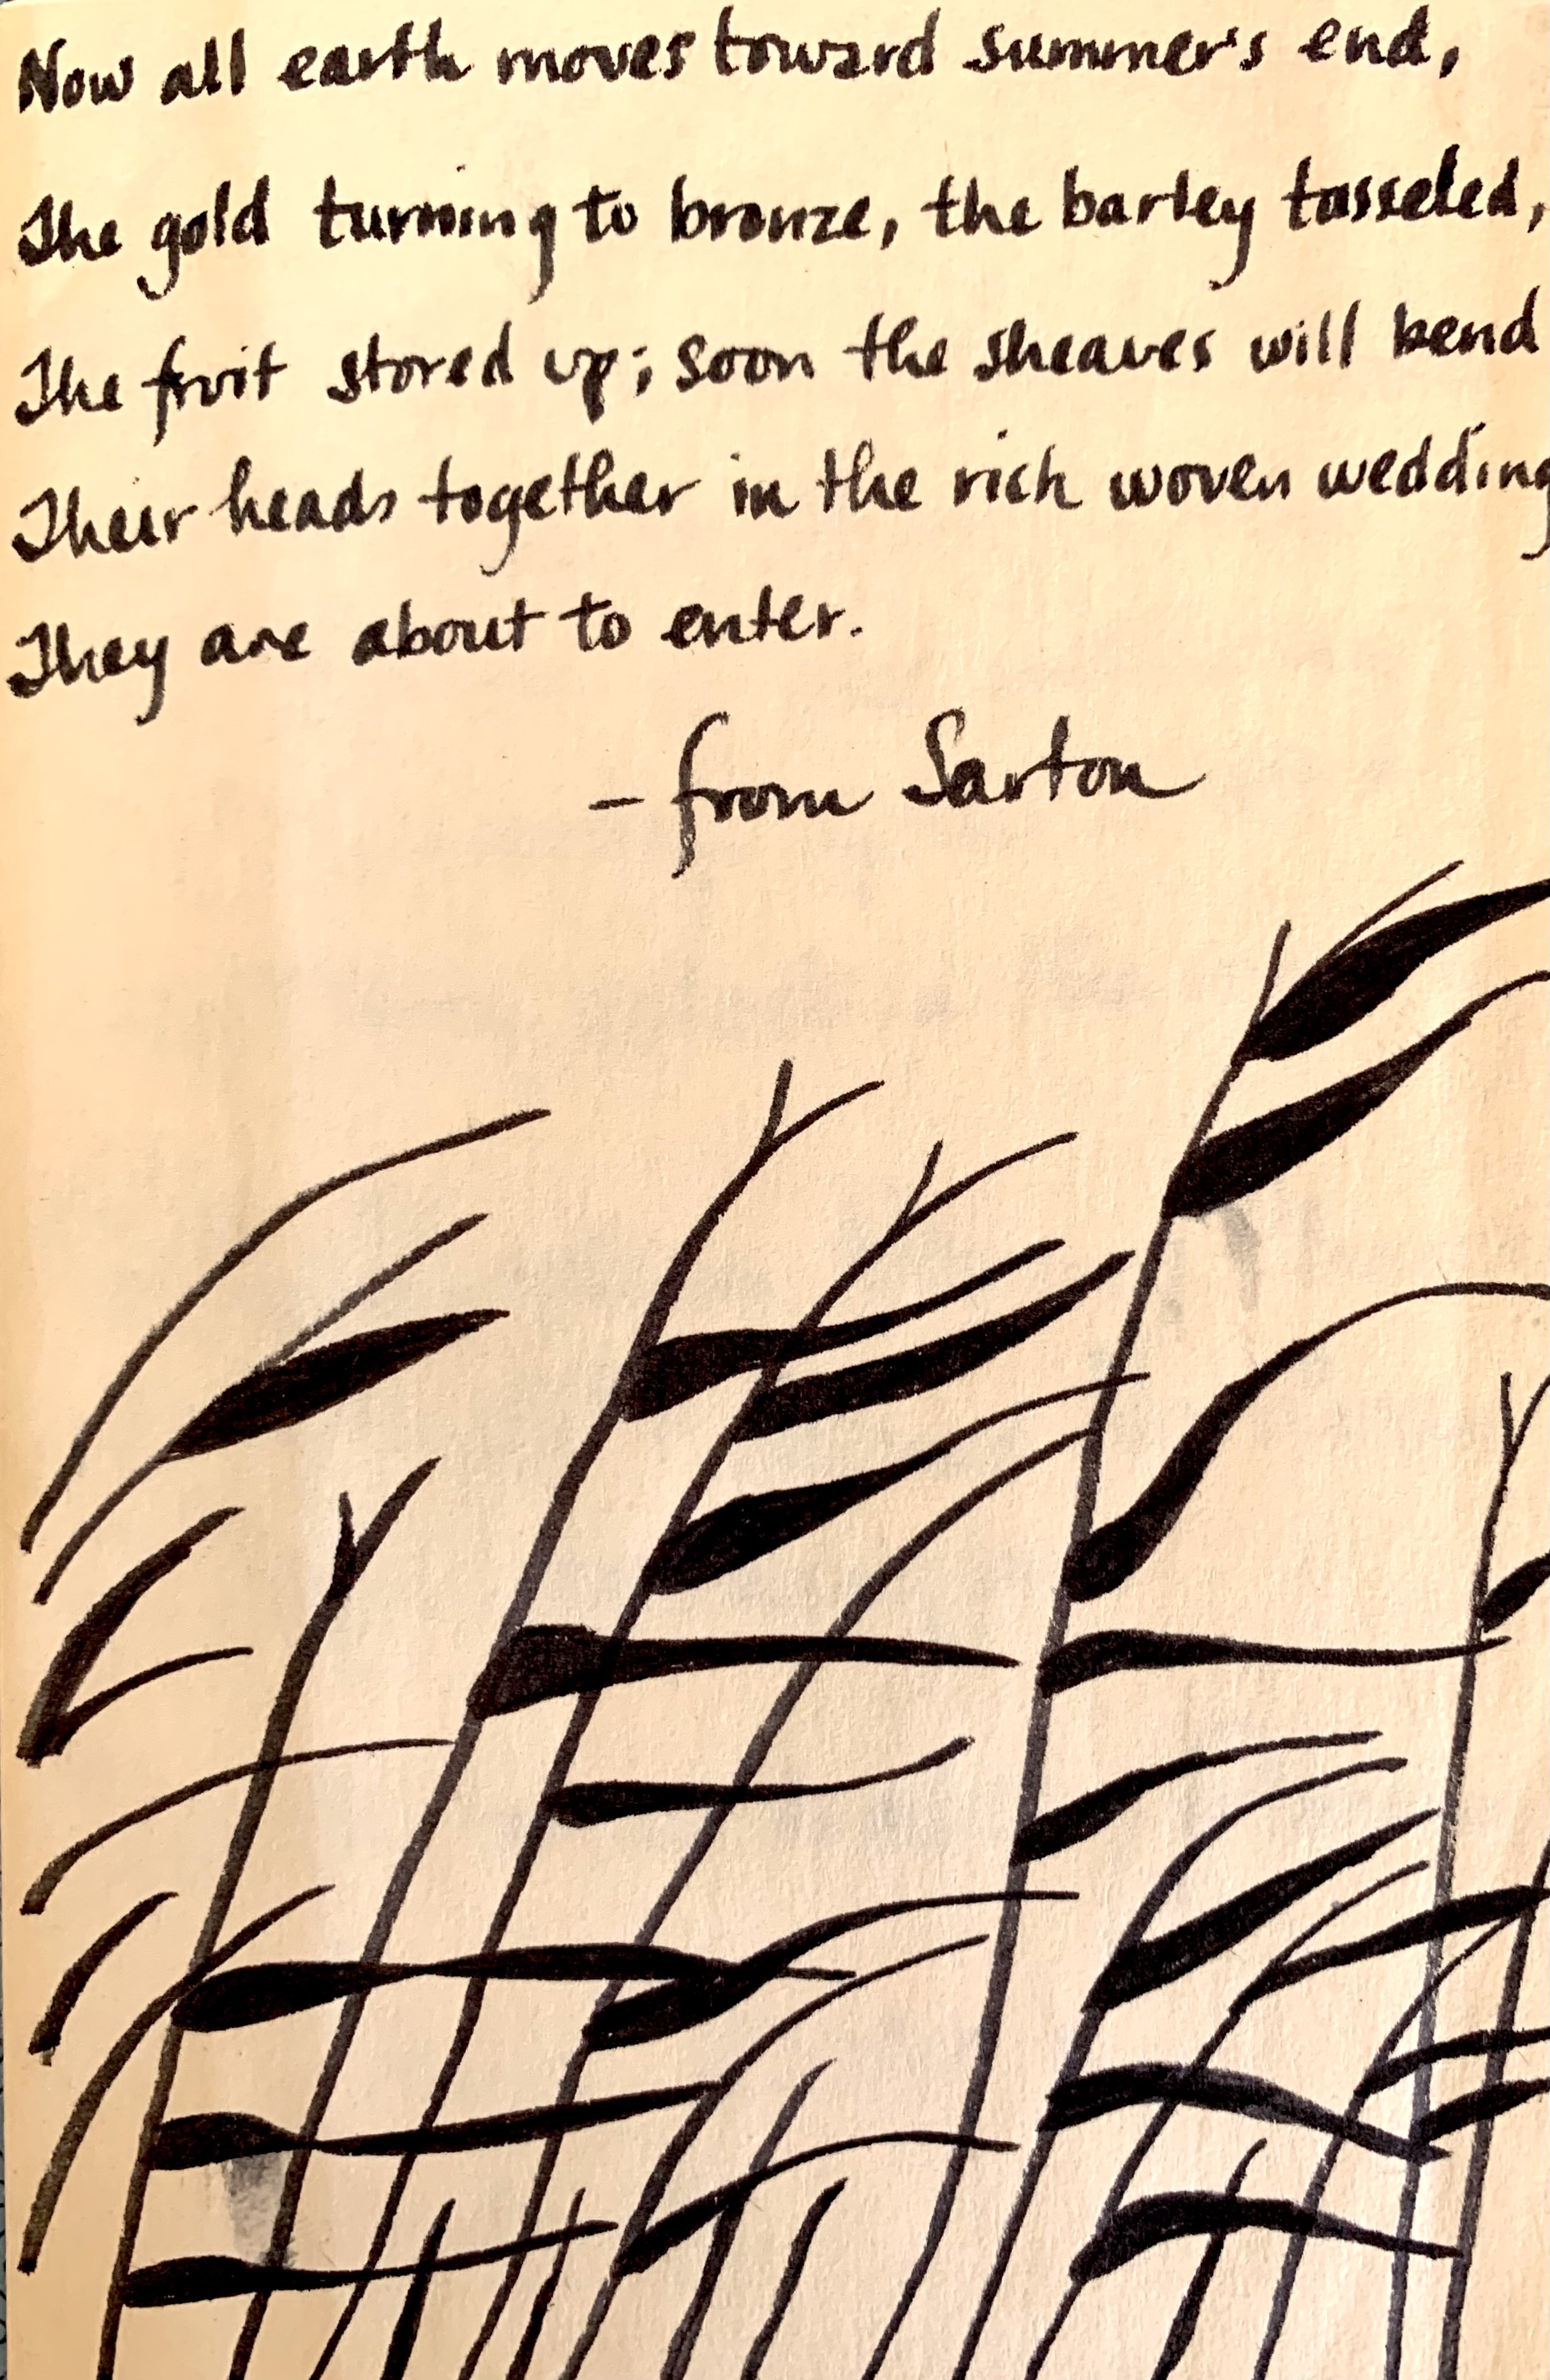 Now all earth moves toward summer's end,
The gold turning to bronze, the barley tasseled,
The fruit stored up; soon the sheaves will bend
Their heads together in the rich woven wedding
They are about to enter.
- from Sarton